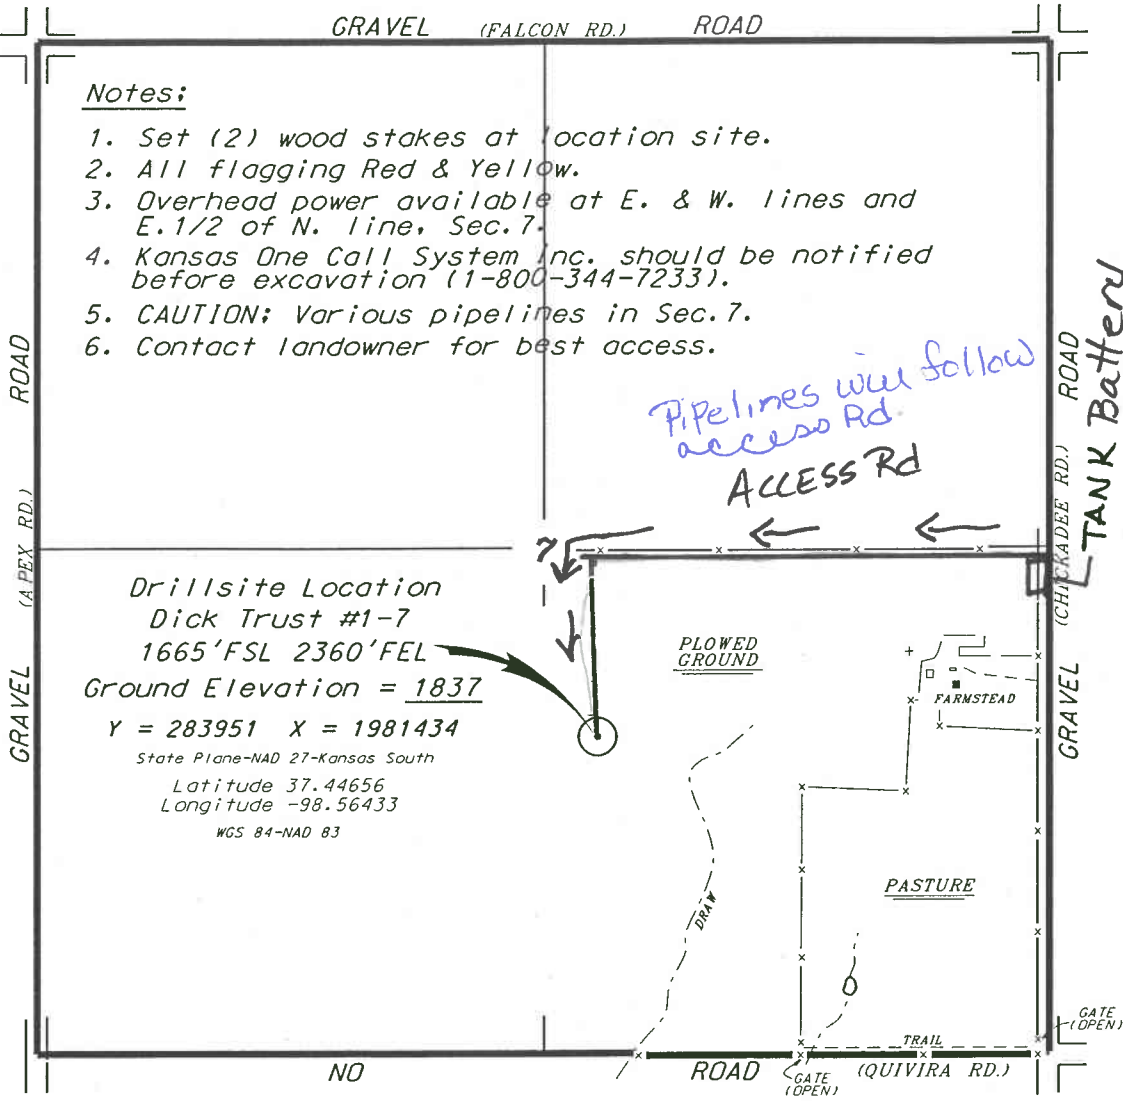 GRAVEL (FALCON RD.) ROAD
Notes:
1. Set (2) wood stakes at location site.
2. All flagging Red & Yellow.
3. Overhead power available at E. & W. lines and
E. 1/2 of N. line, Sec. 7.
4. Kansas One Call System Inc. should be notified
before excavation (1-800-344-7233).
5. CAUTION: Various pipelines in Sec. 7.
6. Contact landowner for best access.
GRAVEL (APEX RD.) ROAD
Pipelines will follow
access Rd
ACCESS Rd
GRAVEL (CHICKADEE RD.) ROAD
TANK Battery
7
Drillsite Location
Dick Trust #1-7
1665'FSL 2360'FEL
Ground Elevation = 1837
Y = 283951 X = 1981434
State Plane-NAD 27-Kansas South
Latitude 37.44656
Longitude -98.56433
WGS 84-NAD 83
PLOWED
GROUND
FARMSTEAD
PASTURE
DRAW
TRAIL
GATE
(OPEN)
NO ROAD (QUIVIRA RD.)
GATE
(OPEN)